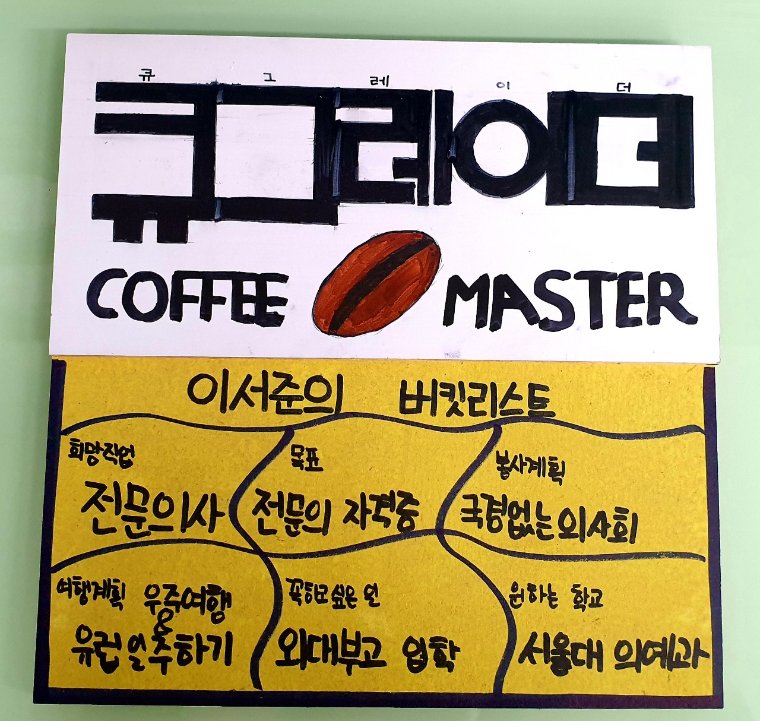 큐 그 레 이 더
큐그레이더
COFFEE MASTER
이서준의 버킷리스트
희망직업
전문의사
목표
전문의 자격증
봉사계획
국경없는의사회
여행계획 우주여행
&
유럽일주하기
꼭하고싶은 일
외대부고 입학
원하는 학교
서울대 의예과